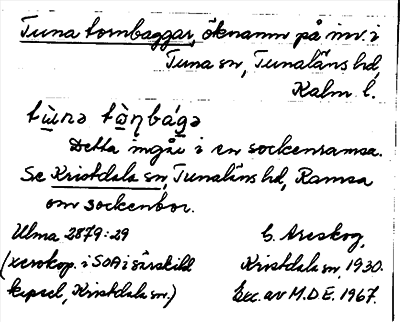 Tuna tornbaggar, öknamn på inv. i
Tuna sn, Tunaläns hd,
Kalm. l.
tù̱nə tò̱ƞbágə
Detta ingår i en sockenramsa.
Se Kristdala sn, Tunaläns hd, Ramsa
om sockenbor.
Ulma 2879:29 G. Areskog,
(xerokop. i SOA i särskild Kristdala sn, 1930.
kapsel, Kristdala sn.) Exc. av M.D.E. 1967.